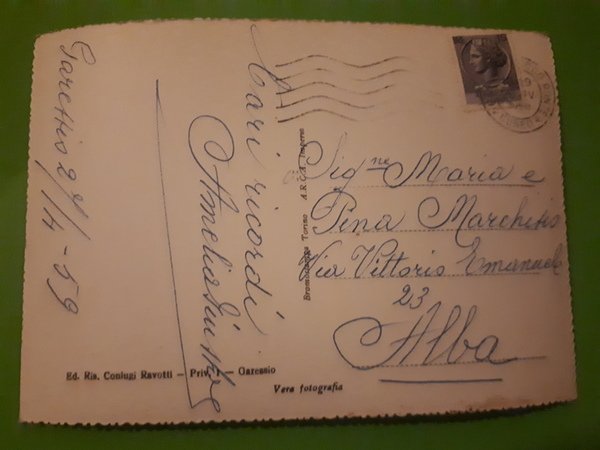 Garessio 2
/4-59
Cari ricordi
Amelia
Sig.ne Maria e
Pina Marchisio
Via Vittorio Emanuele
23
Alba
Torino A.R.C.A.
Ed. Ris. Coniugi Ravotti — Priv. — Garessio
Vera fotografia